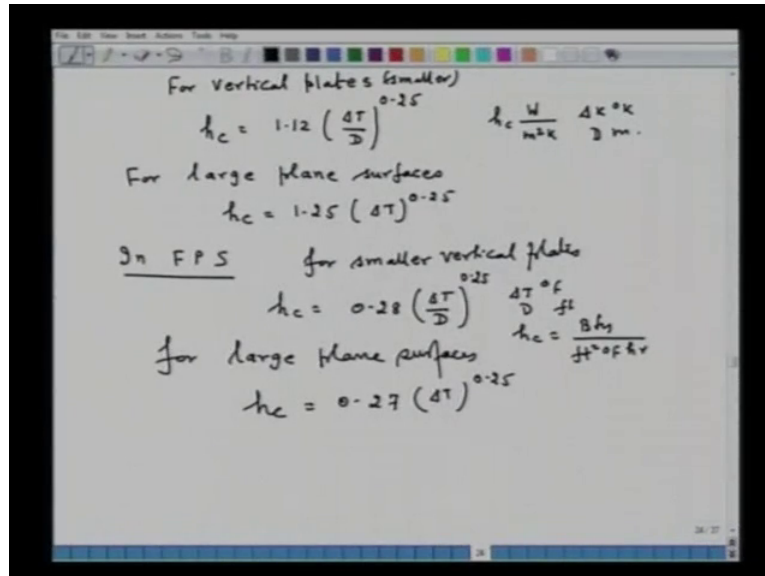 File Edit View Insert Actions Tools Help
For vertical plates (smaller)
hc = 1.12 (ΔT/D)^0.25 hc W/m²K ΔK °K D m.
For large plane surfaces
hc = 1.25 (ΔT)^0.25
In FPS for smaller vertical plates
hc = 0.28 (ΔT/D)^0.25 ΔT °F D ft
hc = Btu/ft² °F hr
for large plane surfaces
hc = 0.27 (ΔT)^0.25
26/27
26